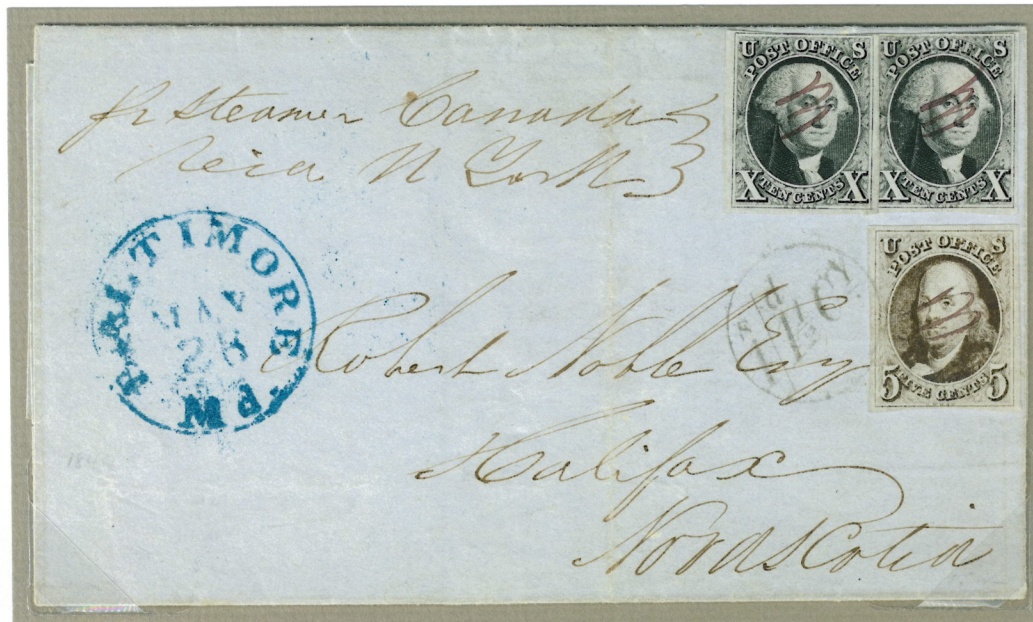 pr Steamer Canada
via N York
U S
POST OFFICE
X TEN CENTS X
U S
POST OFFICE
X TEN CENTS X
U S
POST OFFICE
5 FIVE CENTS 5
BALTIMORE
MAY
28
PM
Robert Noble Esq
Halifax
Nova Scotia